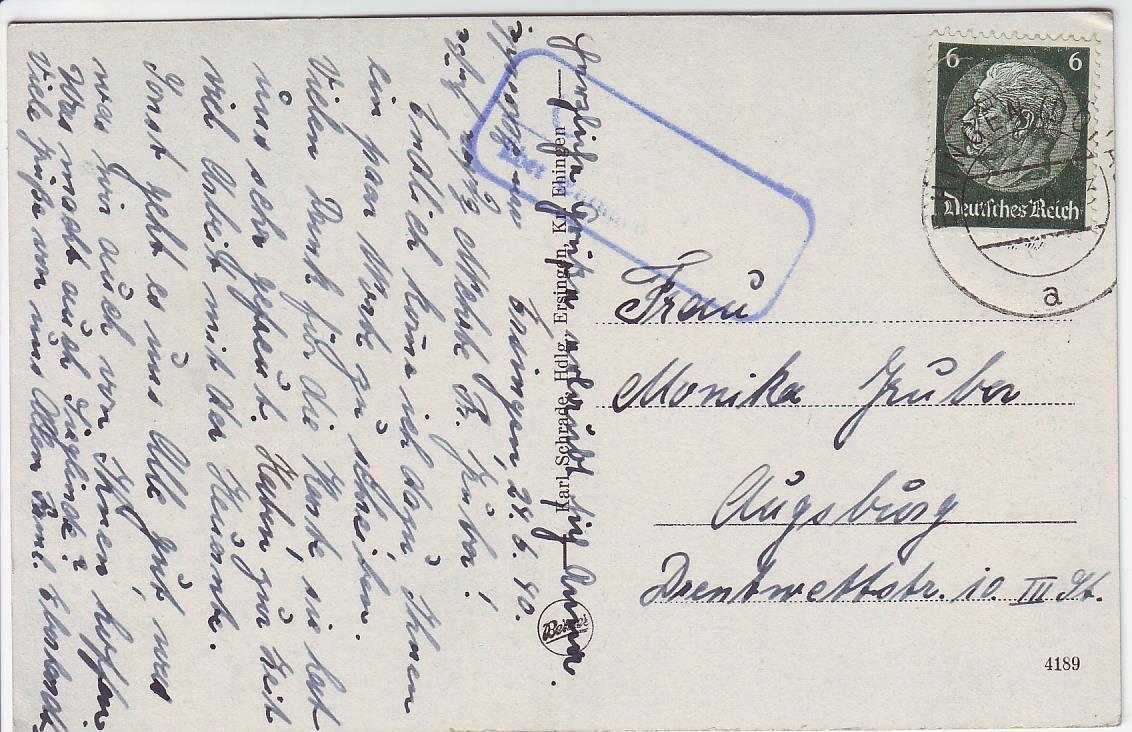 Ersingen, 24.6.40.
Endlich kom ich dazu Ihnen
ein paar Worte zu schreiben.
Vielen Dank für die Karte, sie hat
uns sehr gefreut. Haben zur Zeit
viel Arbeit mit der Heuernte.
Sonst geht es uns Alle gut, was
wir auch von Ihnen hoffen.
Was macht auch Sieglinde?
Viele Grüße von uns Allen Fam.
Herzliche Grüße
Anna.
Karl Schrade, Hdlg., Ersingen, Kr. Ehingen
6 6
Deutsches Reich
a
Frau
Monika Gruber
Augsburg
Drentwettstr. 10 III St.
4189